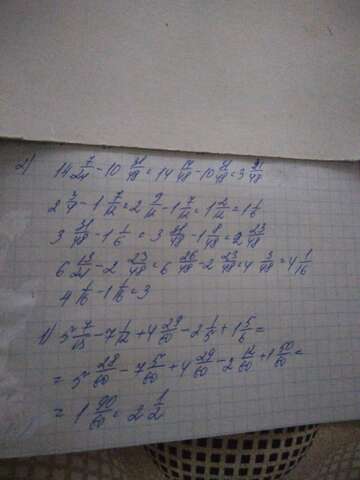 2) 14 7/24 - 10 31/48 = 14 14/48 - 10 31/48 = 3 31/48
2 3/4 - 1 7/12 = 2 9/12 - 1 7/12 = 1 2/12 = 1 1/6
3 31/48 - 1 1/6 = 3 31/48 - 1 8/48 = 2 23/48
6 13/24 - 2 23/48 = 6 26/48 - 2 23/48 = 4 3/48 = 4 1/16
4 1/16 - 1 1/16 = 3
1) 5 7/15 - 7 1/12 + 4 29/60 - 2 1/5 + 1 5/6 =
= 5 28/60 - 7 5/60 + 4 29/60 - 2 12/60 + 1 50/60 =
= 1 90/60 = 2 1/2